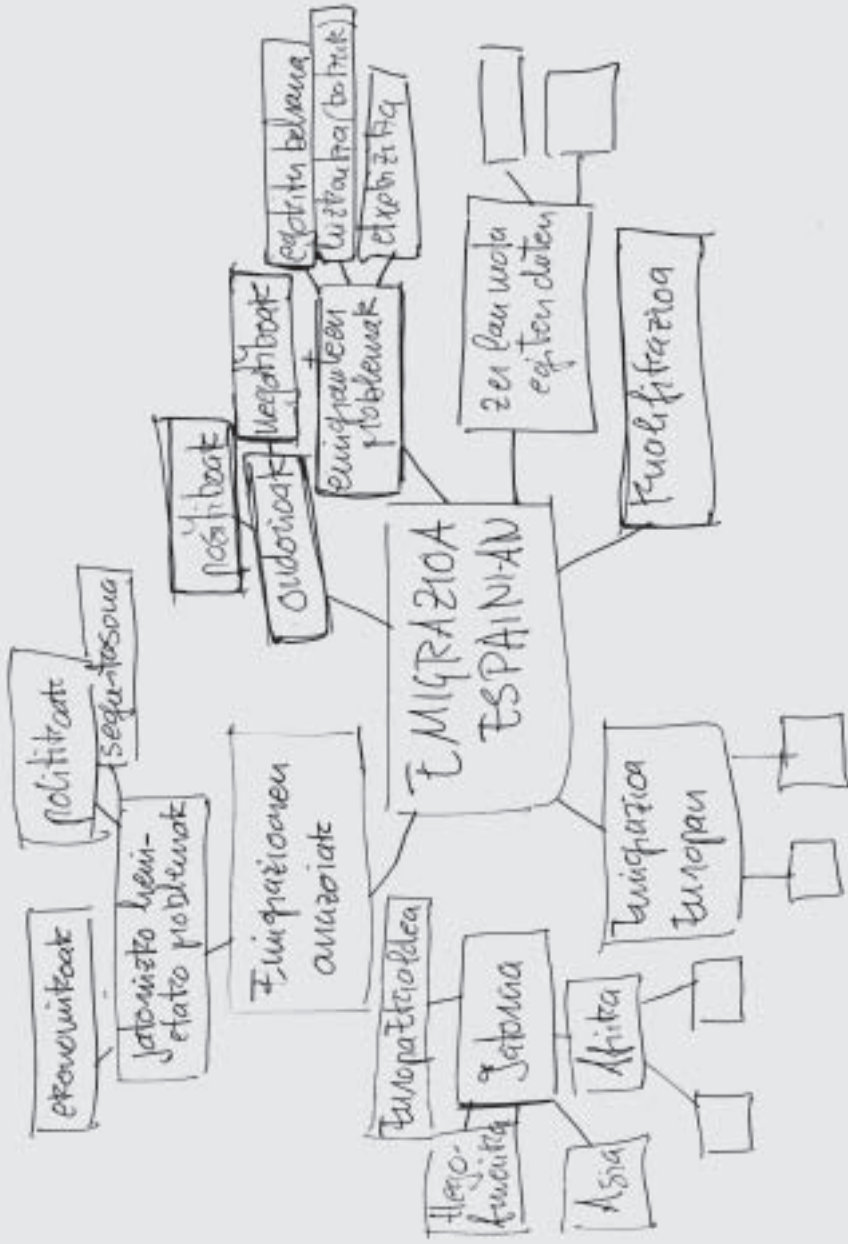 EMIGRAZIOA
ESPAINIAN
Emigrazioaren
arrazoiak
jatorrizko herri-
etako problemak
ekonomikoak
politikoak
segurtasuna
ondorioak
positiboak
negatiboak
emigranteen
problemak
egokitu beharra
hizkuntza
etxebizitza
zer lan mota
egiten duten
Kualifikazioa
Emigrazioa
Europan
Jatorria
Europa ekialdea
Hego-
Amerika
Asia
Afrika